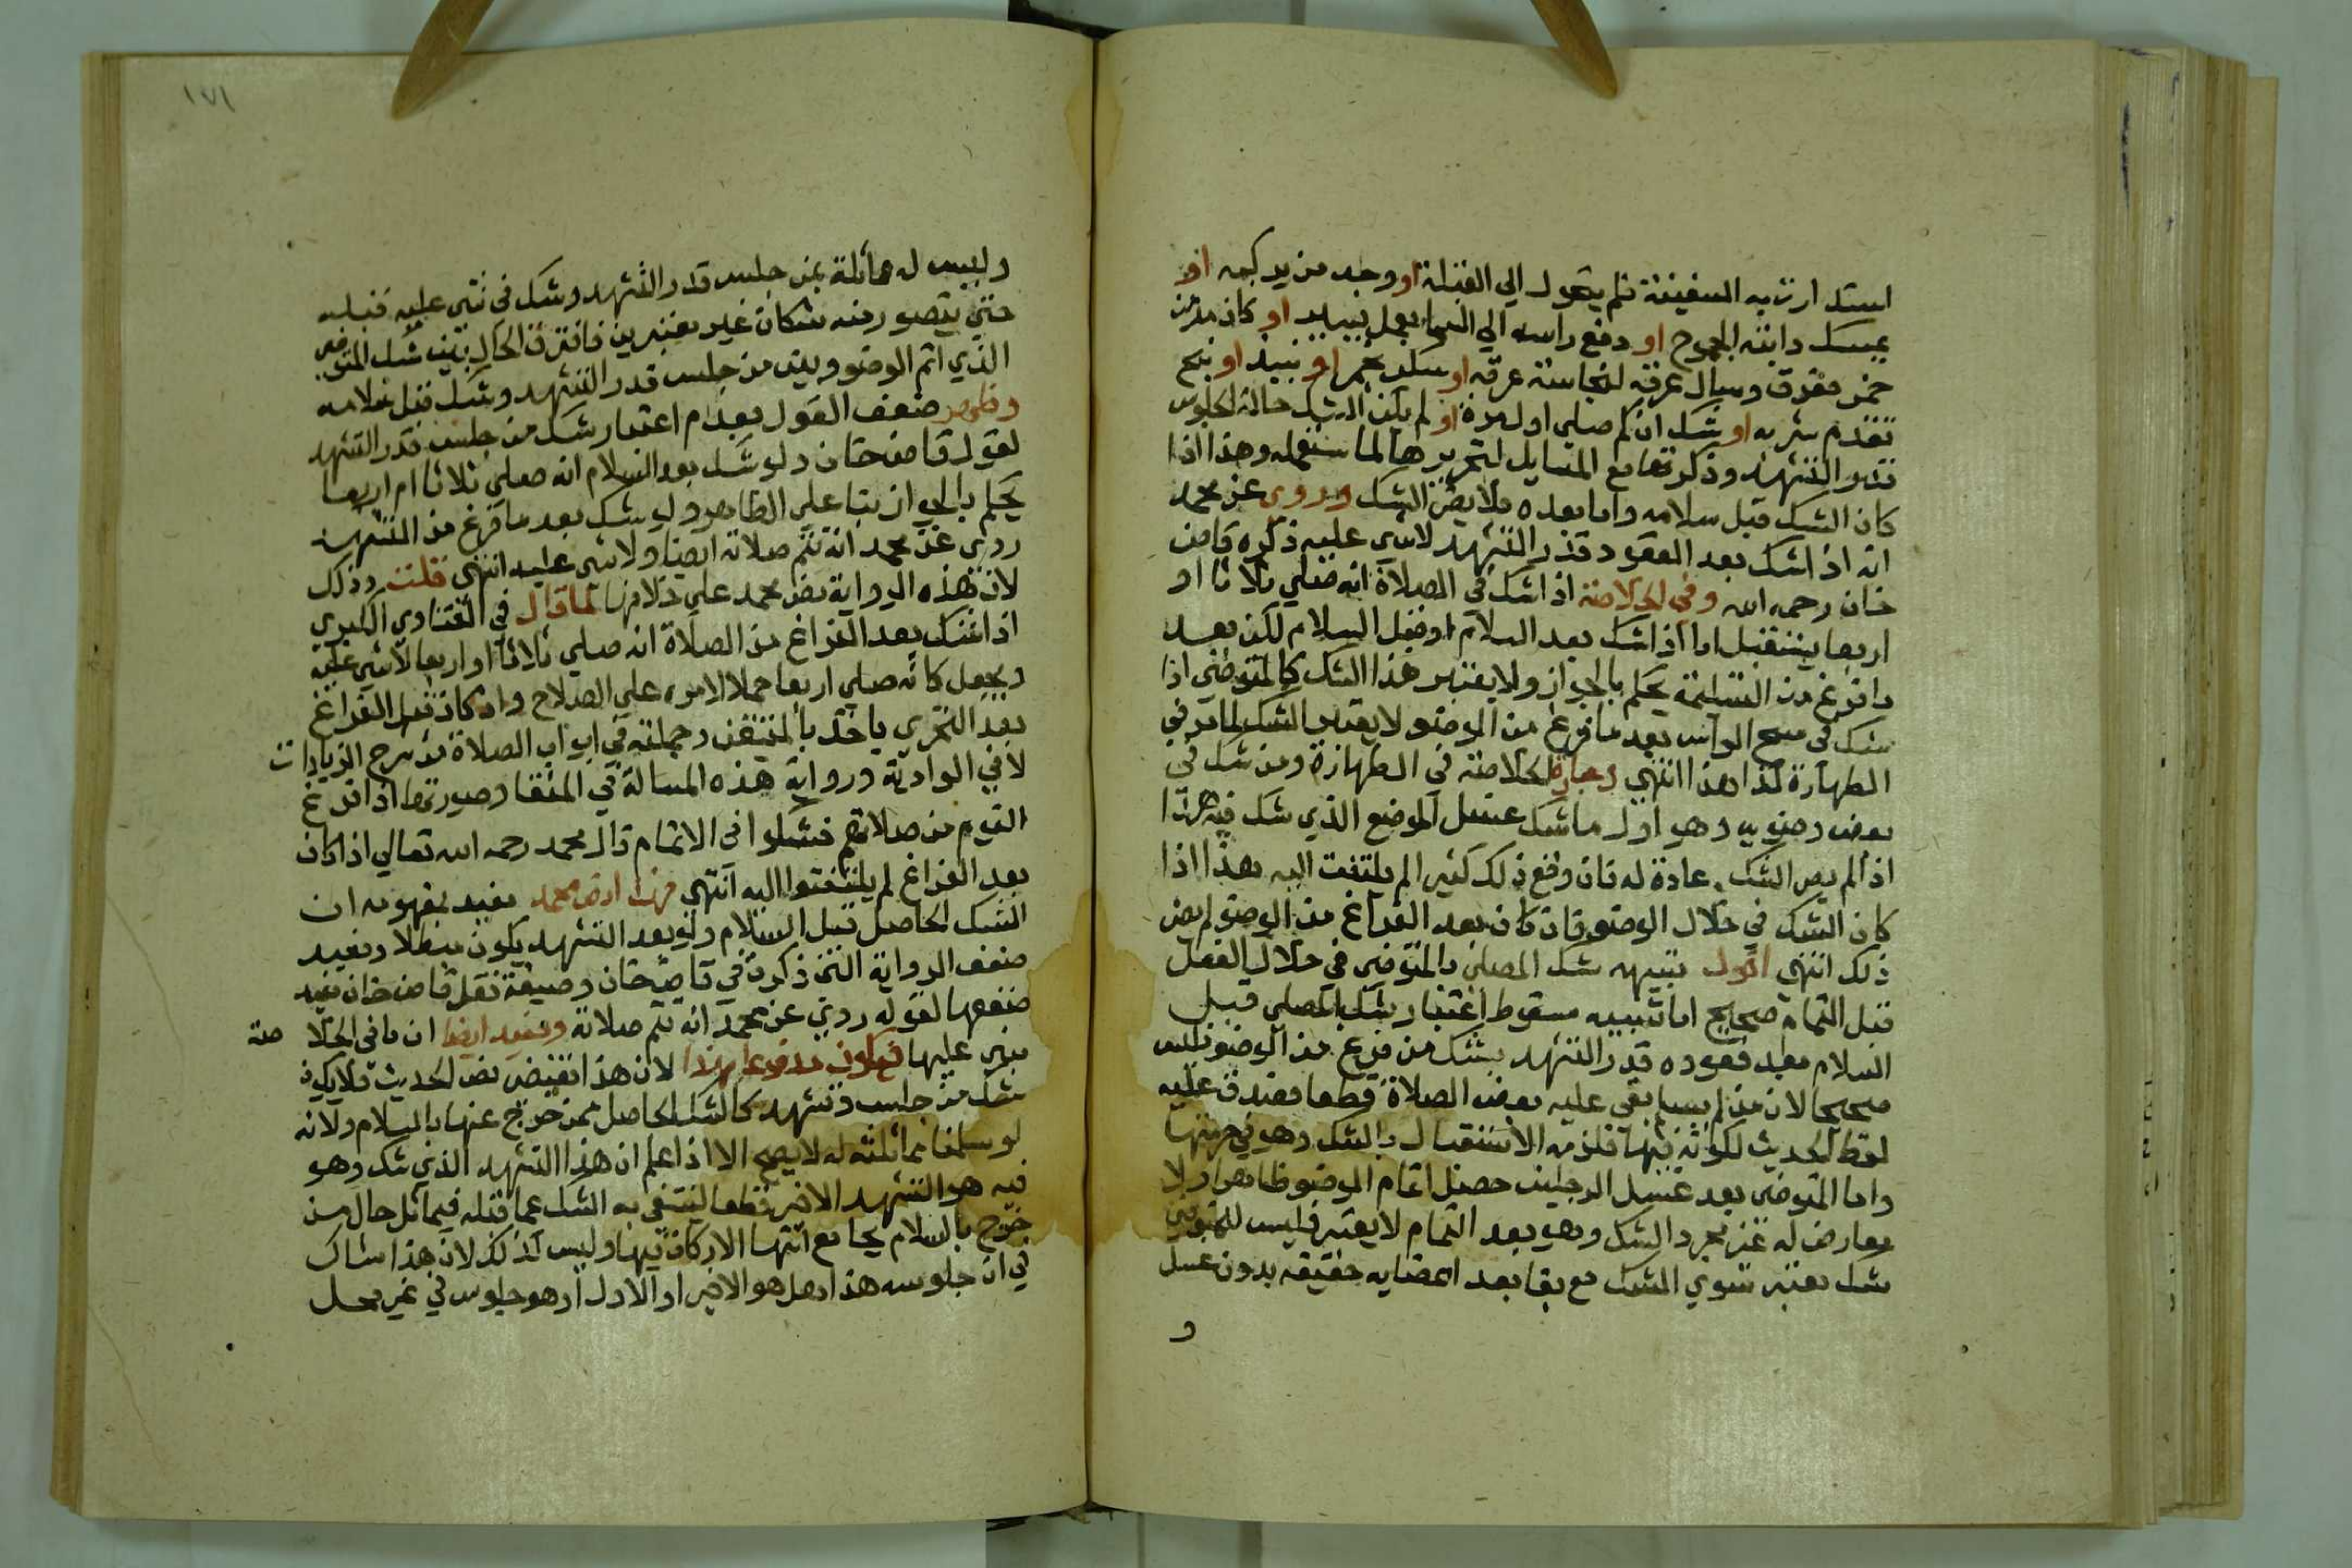 استدارت به السفينة فلم يتحول الي القبلة او وجد من يركبه او
يمسك دابته الجموح او رفع راسه الي السما بعمل او كان
خمر مفرق وسال عرقه لنجاسة عرقه او سكر بخمر او نبيذ او بنج
تقدم شربه او شك ان كم صلي اول مرة او لم يكن الشك حالة الجلوس
قدر التشهد وذكرتها مع المسايل لتحريرها لما ستعلمه وهذا اذا
كان الشك قبل سلامه واما بعده فلا يضر الشك وروي عن محمد
انه اذا شك بعد القعود قدر التشهد لاشي عليه ذكره قاضي
خان رحمه الله وفي الخلاصة اذا شك في الصلاة انه صلي ثلاثا او
اربعا يستقبل اما اذا شك بعد السلام او قبل السلام لكن بعد
ما فرغ من التسليمة يحكم بالجواز ولا يعتبر هذا الشك كالمتوضي اذا
شك في مسح الراس بعد ما فرغ من الوضو لا يعتبر الشك لما مر في
الطهارة كذا هذا انتهي وعبارة الخلاصة في الطهارة ومن شك في
بعض وضوءه وهو اول ما شك غسل الموضع الذي شك فيه هذا
اذا لم يصر الشك عادة له فان وقع ذلك كثيرا لم يلتفت اليه هذا اذا
كان الشك في خلال الوضو فان كان بعد الفراغ من الوضو لم يضر
ذلك انتهي اقول تشبيهه شك المصلي بالمتوضي في خلال الفعل
قبل التمام صحيح اما تشبيهه سقوط اعتبار شك المصلي قبل
السلام بعد قعوده قدر التشهد بشك من فرغ من الوضو فليس
صحيحا لان من لم يسلم بقي عليه بعض الصلاة قطعا فصدق عليه
لفظ الحديث لكونه فيها فلزمه الاستقبال بالشك وهو في حرمتها
واما المتوضي بعد غسل الرجلين حصل اتمام الوضو ظاهرا ولا
معارض له غير مجرد الشك وهو بعد التمام لا يعتبر فليس للمتوضي
شك معتبر سوي الشك مع بقا بعد اعضايه حقيقة بدون غسل
و
١٧١
وليس له مماثلة بمن جلس قدر التشهد وشك في شي عليه قبله
حتي يتصور منه شكان غير معتبرين فافترق الحال بين شك المتوضي
الذي اتم الوضو وبين من جلس قدر التشهد وشك قبل سلامه
وظهر ضعف القول بعدم اعتبار شك من جلس قدر التشهد
لقول قاضي خان ولو شك بعد السلام انه صلي ثلاثا ام اربعا
يحكم بالجواز بنا علي الظاهر ولو شك بعد ما فرغ من التشهد
روي عن محمد انه تتم صلاته ايضا ولا شي عليه انتهي قلت وذلك
لان هذه الرواية نص محمد علي خلافها لما قال في الفتاوي الكبري
اذا شك بعد الفراغ من الصلاة انه صلي ثلاثا او اربعا لا شي عليه
ويجعل كانه صلي اربعا حملا لامره علي الصلاح وان كان قبل الفراغ
بعد التحري ياخذ بالمتيقن وجملته في ابواب الصلاة من شرح الزيادات
لا في الوادية ورواية هذه المسالة في المنتقا وصورتها اذا فرغ
القوم من صلاتهم فشكوا في الاتمام قال محمد رحمه الله تعالي اذا كان
بعد الفراغ لم يلتفتوا اليه انتهي فهذا نص محمد يفيد بمفهومه ان
الشك الحاصل قبل السلام ولو بعد التشهد يكون مبطلا ويفيد
ضعف الرواية التي ذكرت في قاضي خان وصيغة نقل قاضي خان تفيد
ضعفها لقوله روي عن محمد انه تتم صلاته ويفيد ايضا ان ما في الخلاصة
مبني عليها فيكون مدفوعا بهذا لان هذا نقيض نص الحديث فلا يكون
شك من جلس وتشهد كالشك الحاصل ممن خرج عنها بالسلام ولانه
لو سلمنا مماثلته له لا يصح الا اذا علم ان هذا التشهد الذي شك وهو
فيه هو التشهد الاخير قطعا لينتفي به الشك عما قبله فيماثل حال من
خرج بالسلام بجامع انتها الاركان فيها وليس كذلك لان هذا شاك
في ان جلوسه هذا هل هو الاخير او الاول او هو جلوس في غير محل